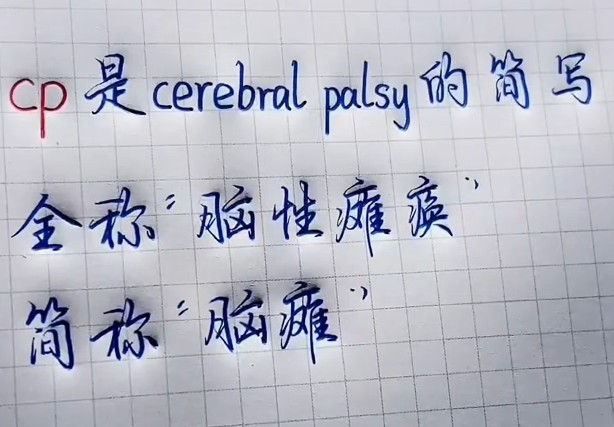 cp是cerebral palsy的简写
全称“脑性瘫痪”
简称“脑瘫”